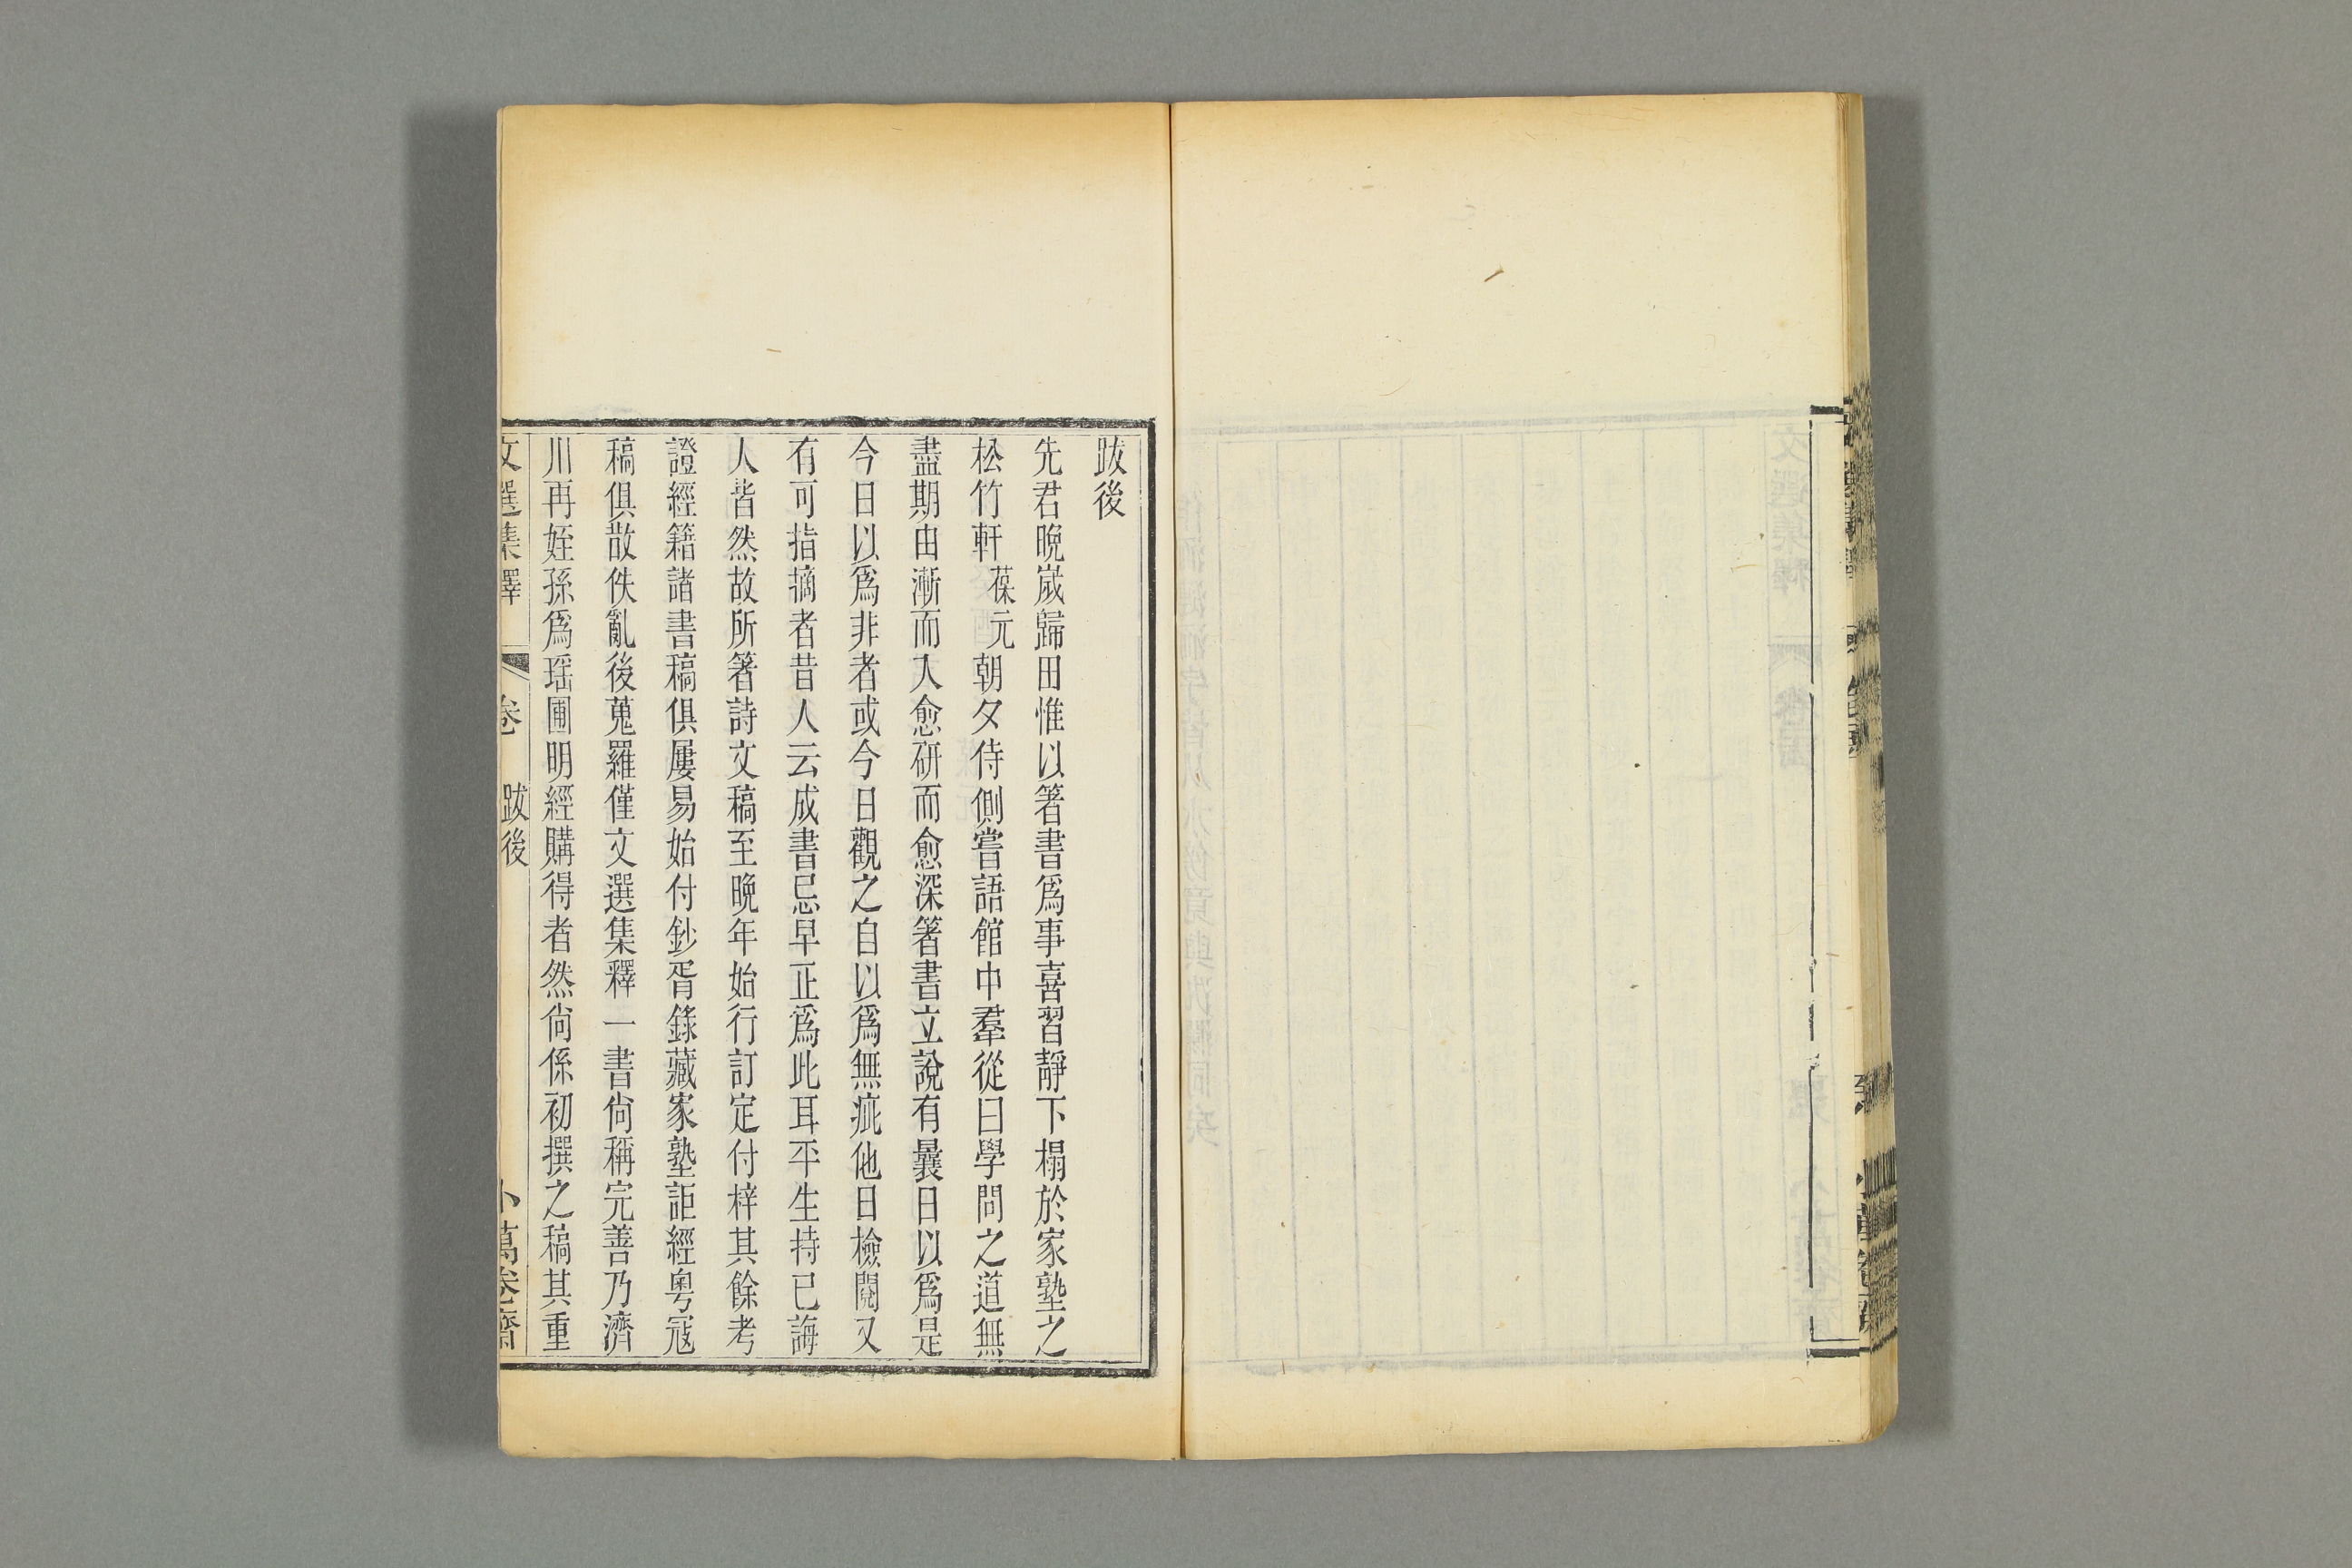 跋後
先君晚歲歸田惟以箸書爲事喜習靜下榻於家塾之
松竹軒葆元朝夕侍側嘗語館中羣從曰學問之道無
盡期由漸而入愈研而愈深箸書立說有曩日以爲是
今日以爲非者或今日觀之自以爲無疵他日檢閱又
有可指摘者昔人云成書忌早正爲此耳平生持己誨
人皆然故所箸詩文稿至晚年始行訂定付梓其餘考
證經籍諸書稿俱屢易始付鈔胥錄藏家塾詎經粵寇
稿俱散佚亂後蒐羅僅文選集釋一書尙稱完善乃濟
川再姪孫爲瑶圃明經購得者然尙係初撰之稿其重
文選集釋 卷 跋後 小萬卷齋